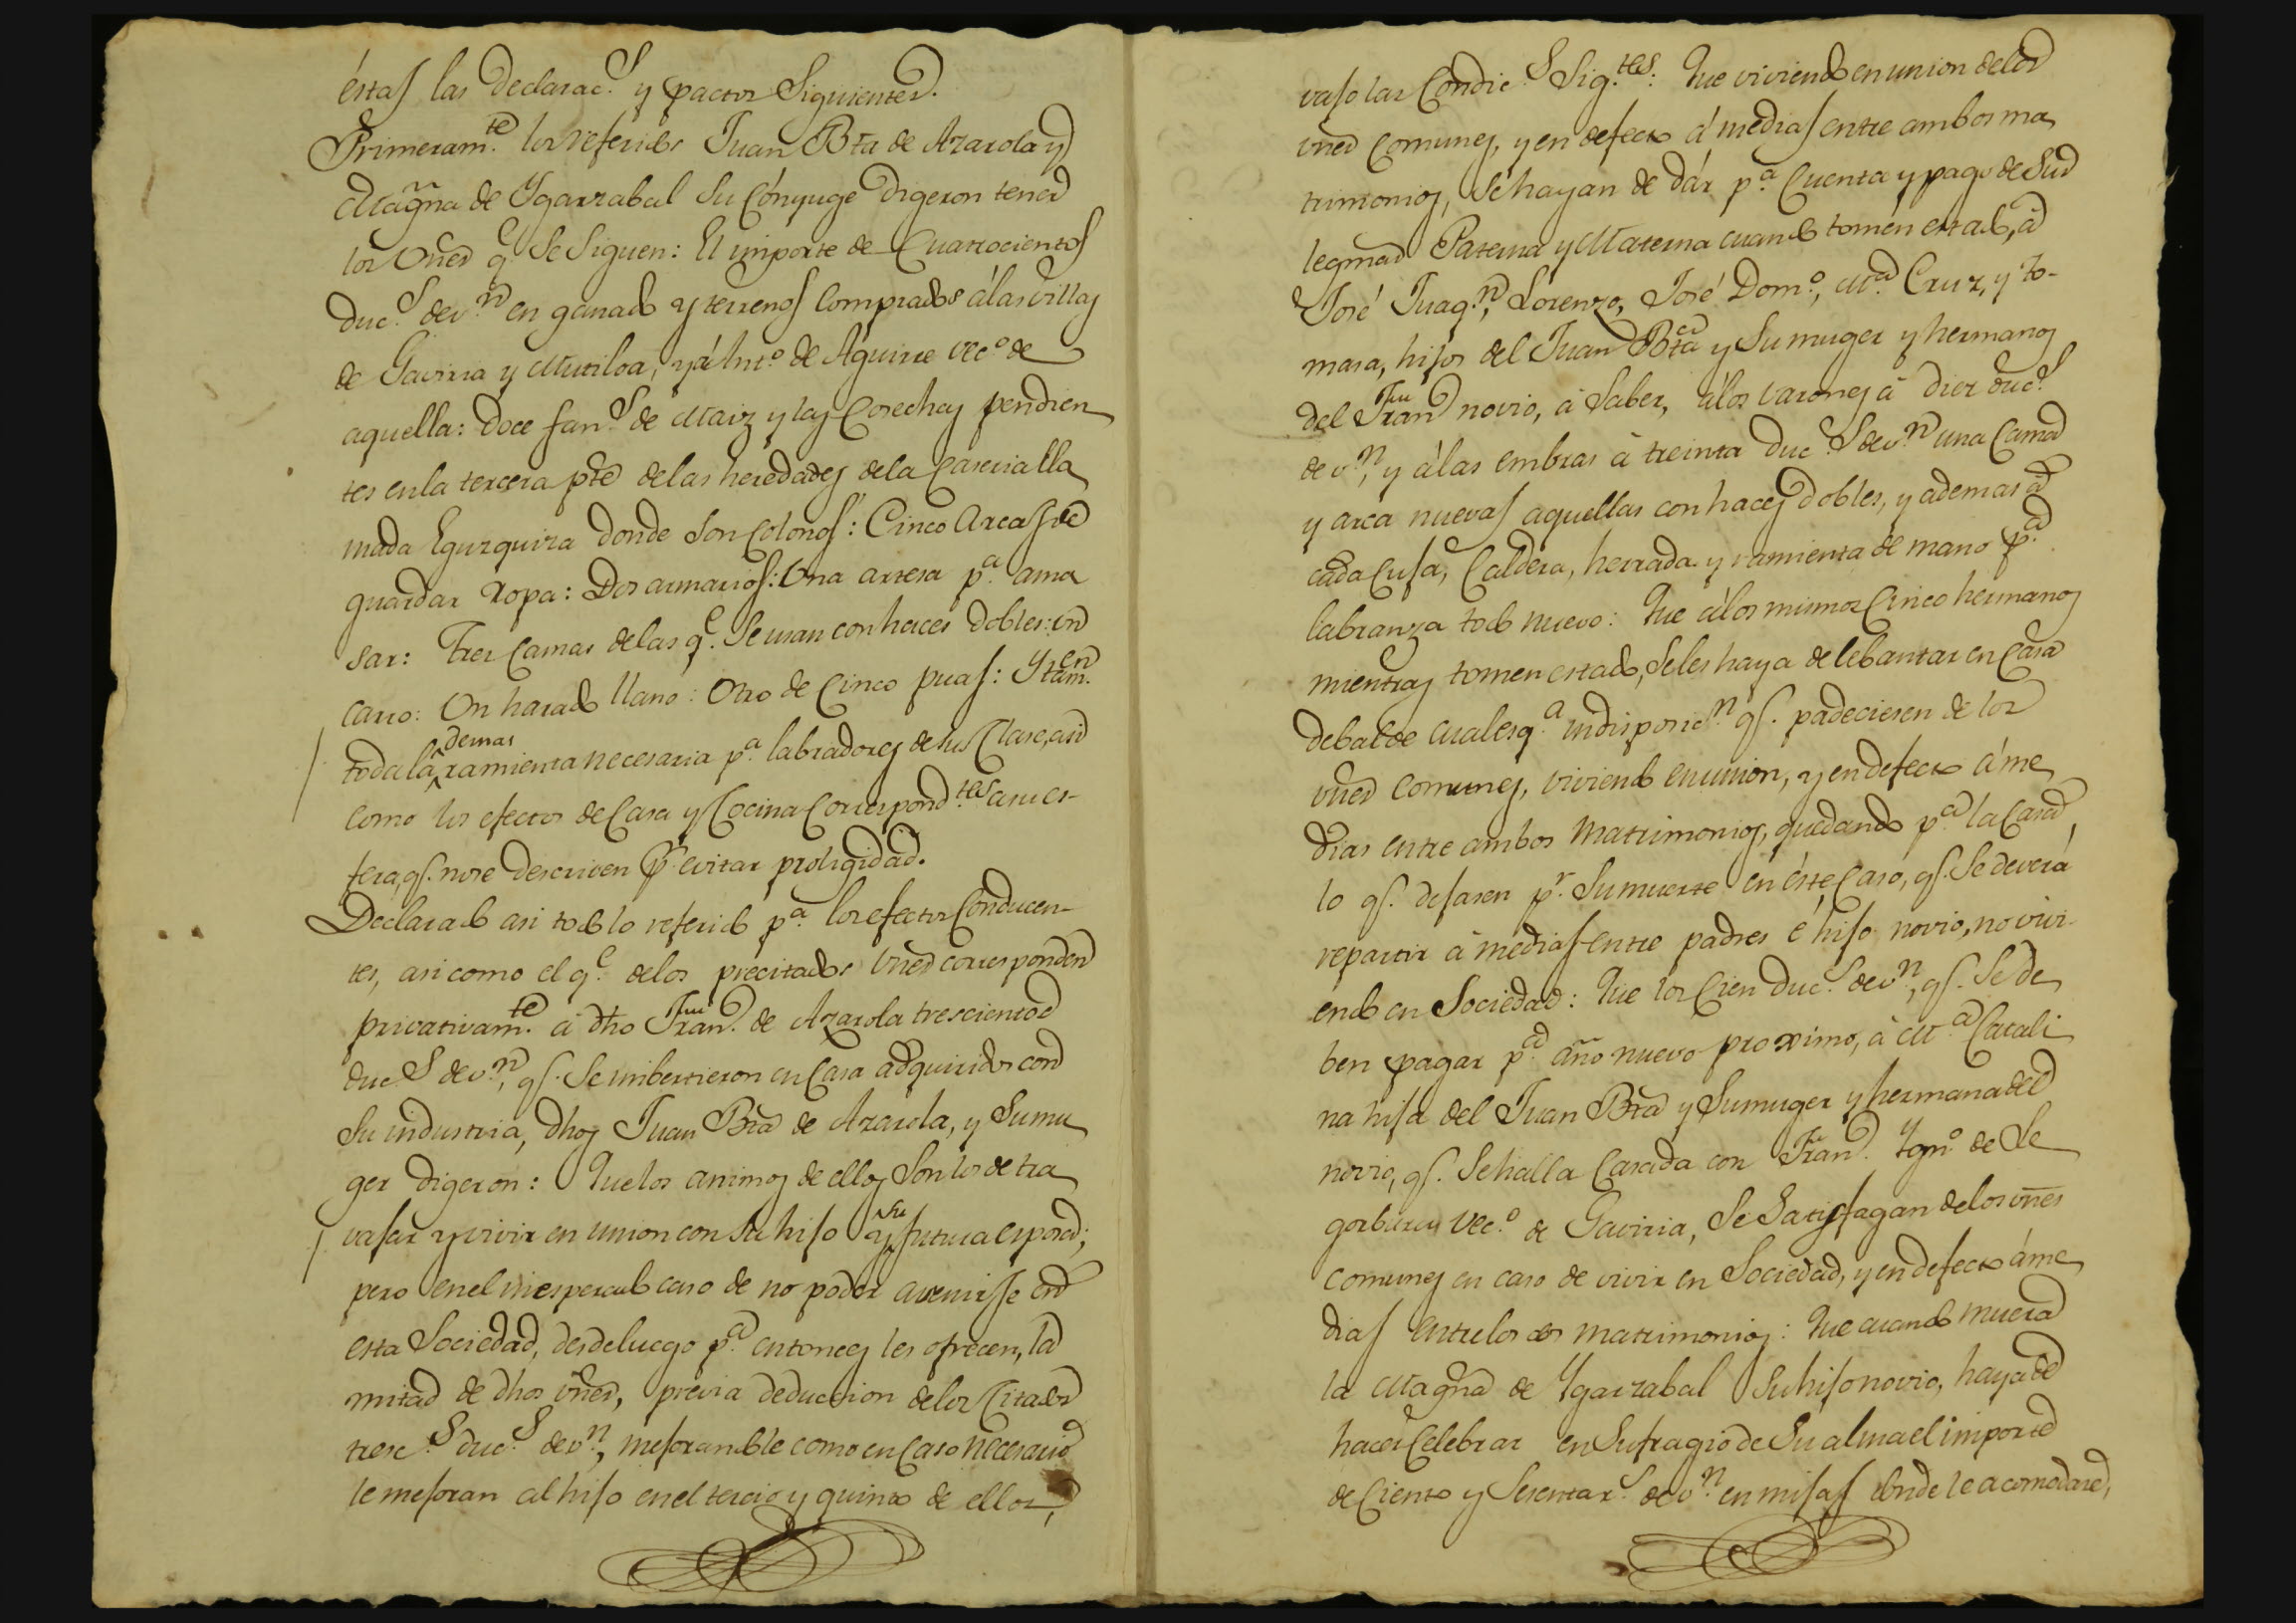 éstas las Declarac.s y pactos Siguientes.
Primeram.te los referidos Juan Bta de Azarola y
Magna de Ygarzabal su Cónyuge Digeron tener
los vnes q.e Se Siguen: El importe de Cuatrocientos
Duc.s de v.n en ganado y terrenos Comprados á las villas
de Gaviria y Mutiloa, y á Ant.o de Aguirre vec.o de
aquella: Doce fan.s de Maiz y las Cosechas pendien
tes en la tercera pte de las heredades de la Caseria lla
mada Egurquiza donde Son Colonos: Cinco Arcas de
guardar Ropa: Dos armarios: Una artesa p.a ama
sar: Tres Camas de las q.e Se usan con haces Dobles: un
carro: Un harado llano: Otro de Cinco puas: Ytam.en
toda la demas ramienta necesaria p.a labradores de su Clase, asi
como los efectos de Casa y Cocina Correspond.tes a su es-
fera, q.e no se Descriven p.r evitar proligidad.
Declarado asi todo lo referido p.a los efectos Conducen-
tes, asi como el q.e de los precitados vnes corresponden
privativam.te á dho Fran.co de Azarola trescientos
duc.s de v.n, q.e Se imbertieron en Casa adquiridos con
Su industria, dhos Juan Bta de Azarola, y Su mu
ger digeron: Que los animos de ellos Son los de tra
vajar y vivir en union con Su hijo y su futura esposa;
pero en el inesperado caso de no poder avenirse en
esta Sociedad, desde luego p.a entonces les ofrecen, la
mitad de dhos vnes, previa deduccion de los Citados
tresc.s duc.s de v.n, mejorandole como en Caso necesario
le mejoran al hijo en el tercio y quinto de ellos,
vajo las Condic.s Sig.tes: Que viviendo en union de los
vnes Comunes, y en defecto á medias entre ambos ma
trimonios, Se hayan de dár p.a Cuenta y pago de Sus
legmas Paterna y Materna cuando tomen estado, á
José Juaq.n, Lorenzo, José Dom.o, M.a Cruz, y To-
masa, hijos del Juan Bta y Su muger y hermanos
del Fran.co novio, á Saber, á los varones á diez duc.s
de v.n, y á las embras á treinta Duc.s de v.n una Cama
y arca nuevas aquellas con haces dobles, y ademas á
cada Cusa, Caldera, herrada y ramienta de mano p.a
labranza todo nuevo: Que á los mismos Cinco hermanos
mientras tomen estado, Se les haya de lebantar en Casa
debalde cualesq.a indisposic.n q.e padeciesen de los
vnes Comunes, viviendo en union, y en defecto á me
dias entre ambos Matrimonios, quedando p.a la Casa
lo q.e dejasen p.r Su muerte en éste Caso, q.e Se deverá
repartir á medias entre padres é hijo novio, no vivi-
endo en Sociedad: Que los Cien Duc.s de v.n, q.e Se de
ben pagar p.a año nuevo proximo, á M.a Catali
na hija del Juan Bta y Su muger y hermana del
novio, q.e Se halla Casada con Fran.co Ygn.o de Se
gorburu vec.o de Gaviria, Se Satisfagan de los vnes
comunes en caso de vivir en Sociedad, y en defecto á me
dias entre los dos matrimonios: Que cuando muera
la Magna de Ygarzabal Su hijo novio, haya de
hacer Celebrar en Sufragio de Su alma el importe
de Ciento y Sesenta r.s de v.n en misas donde le acomodare,